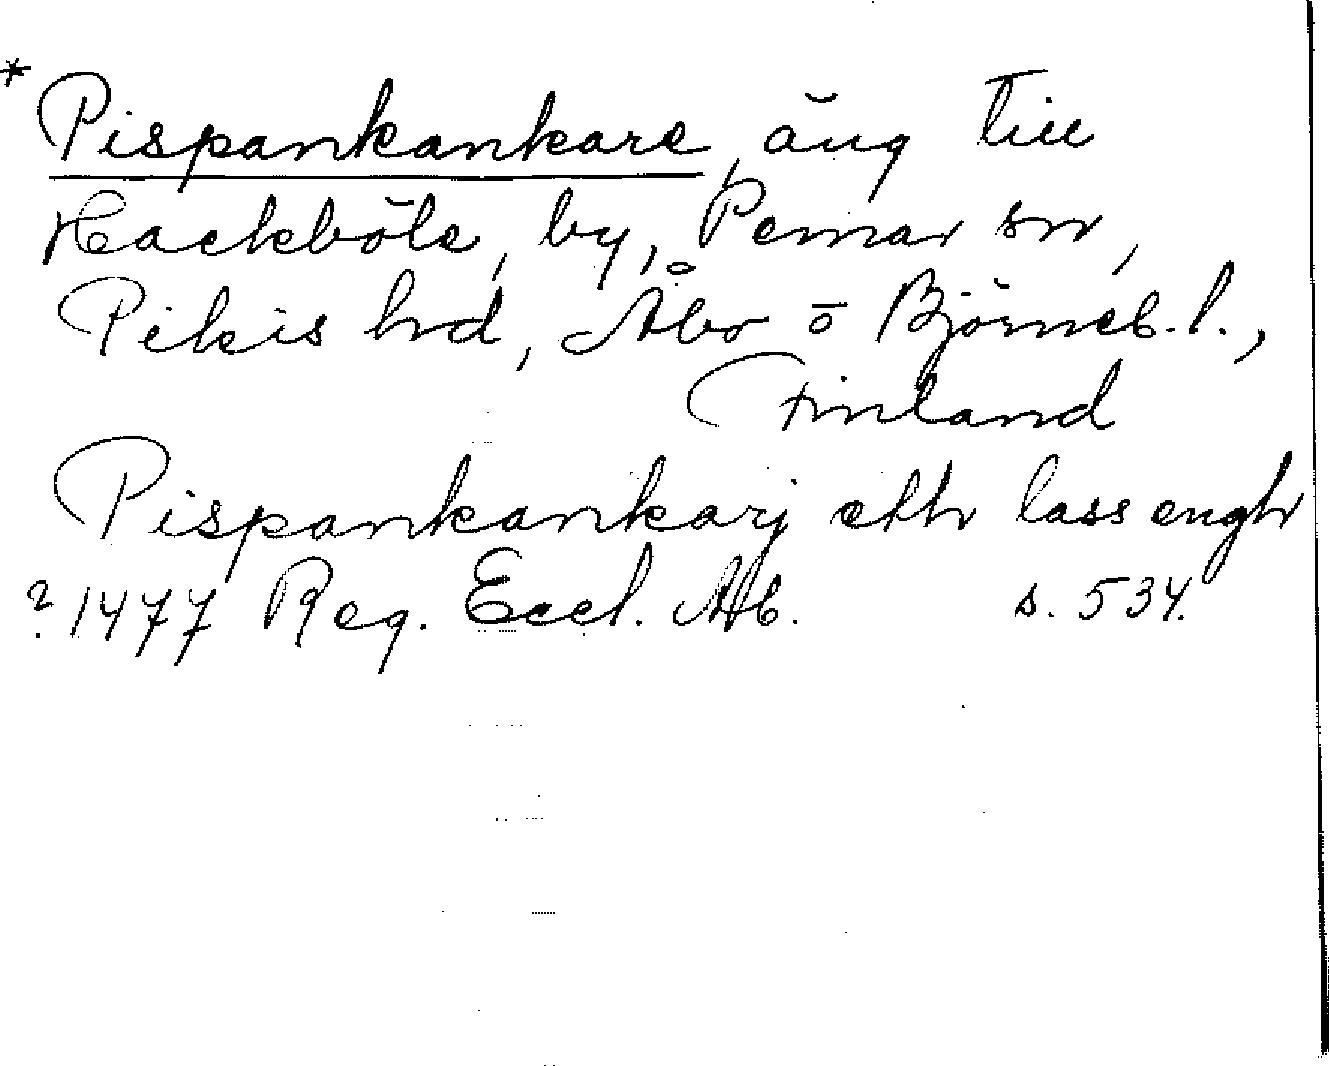 * Pispankankare, äng till
Hackböle, by, Pemar sn,
Pikis hd, Åbo o Björneb. l.,
Finland
Pispankankarj etth lass engh
? 1477 Reg. Eccl. Ab. s. 534.